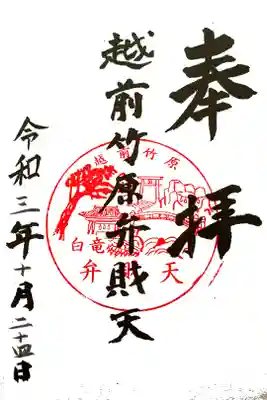 奉拝
越前竹原弁財天
越前竹原
白竜
弁天
令和三年十月二十四日